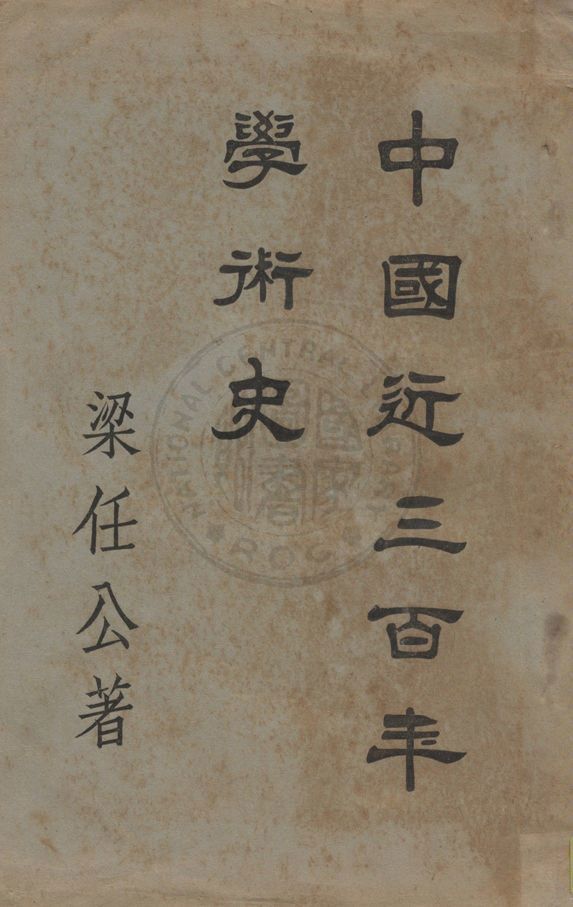 中國近三百年
學術史
梁任公著
NATIONAL CENTRAL LIBRARY
ROC